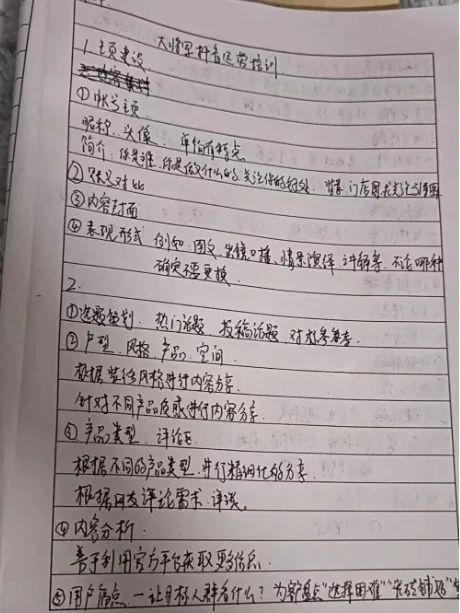 大将军抖音运营培训
1.主页建设
①账号主页
昵称、头像、单怕有特点
简介:你是谁、你是做什么的、关注你的好处、背景:门店图
②账号对比
③内容封面
④表现形式 例如:图文、出镜口播、情景演绎、讲解等、不论哪种
确定不要更换
2.
①选题策划、热门话题、投稿话题、对标参考
②户型、风格、产品、空间
根据装修风格进行内容分享
针对不同产品质感进行内容分享
③产品类型、评论区
根据不同的产品类型、进行精细化的分享
根据网友评论需求、详谈。
④内容分析.
善于利用官方平台获取更多信息
⑤用户痛点、一让目标人群看什么?为客 "选择困难"